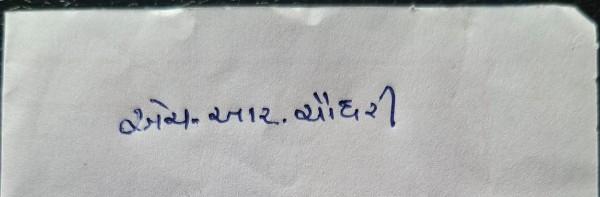 એચ.આર.ચૌધરી